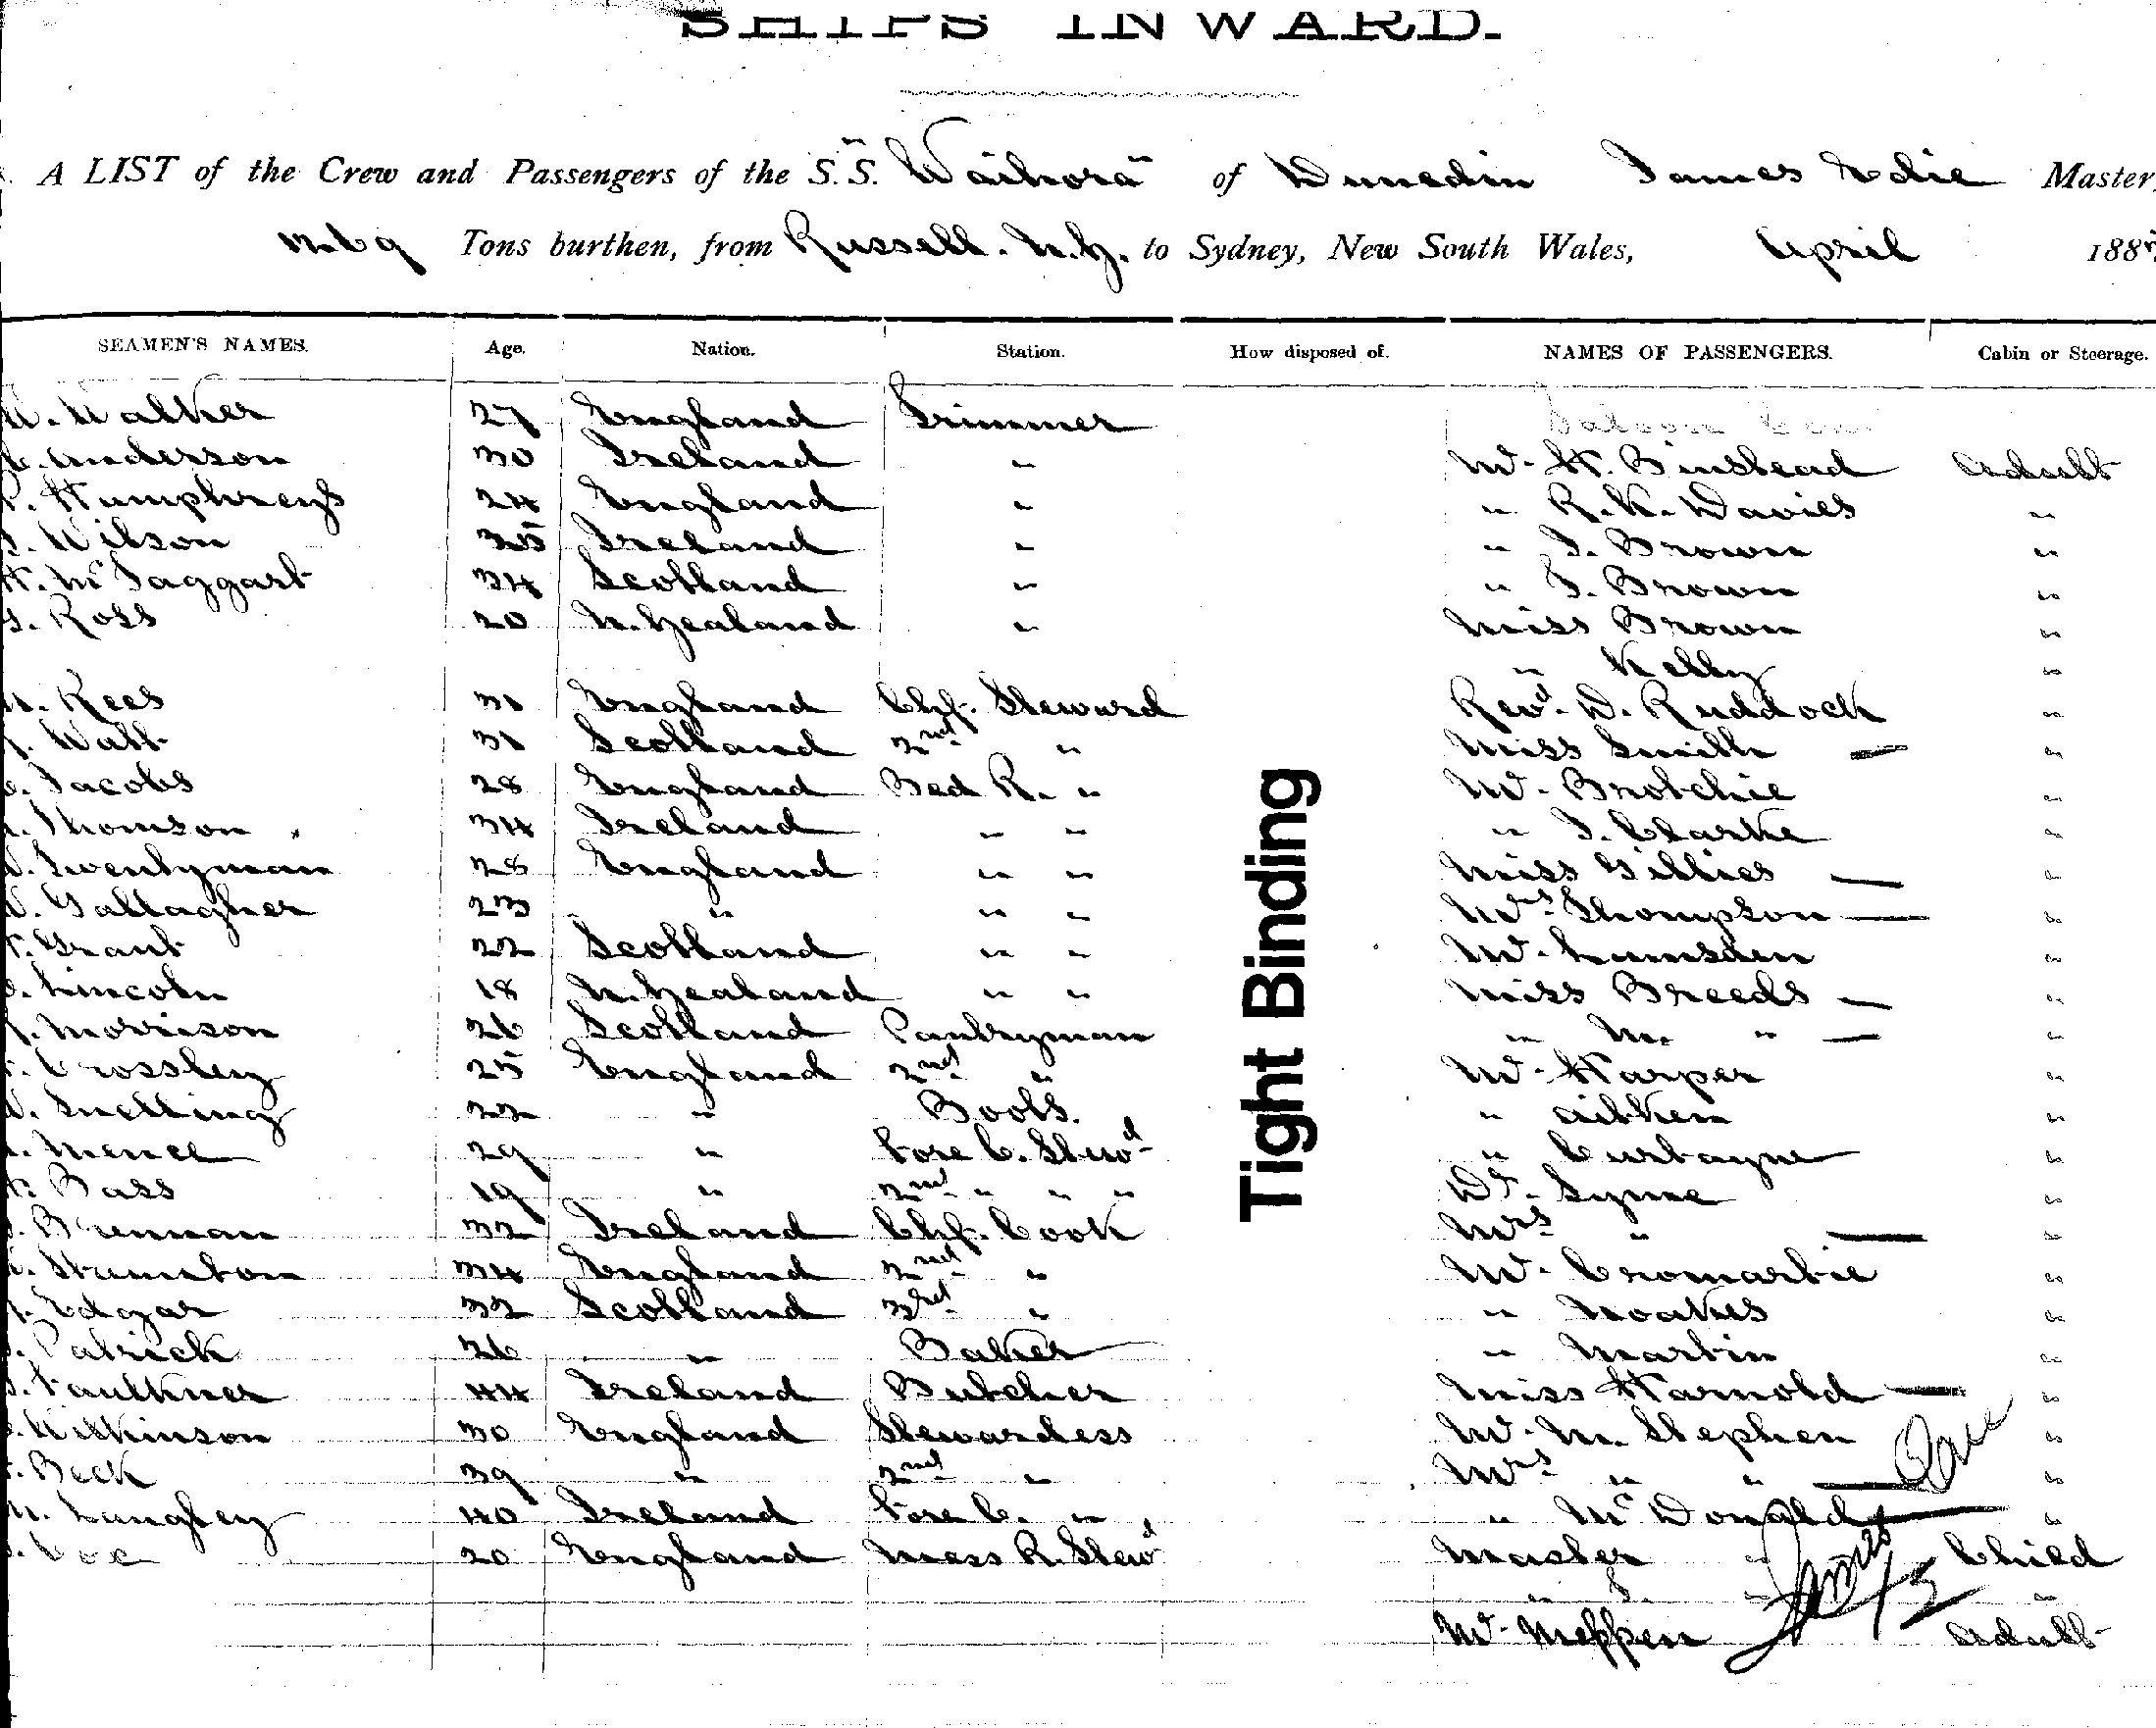 SHIPS INWARD.
A LIST of the Crew and Passengers of the S.S. "Waihora" of Dunedin James Edie Master,
1269 Tons burthen, from Russell. N.Z. to Sydney, New South Wales, April 188
SEAMEN'S NAMES. Age. Nation. Station. How disposed of. NAMES OF PASSENGERS. Cabin or Steerage.
W. Walker 27 England Trimmer Saloon
Anderson 30 Ireland " Mr. H. Binstead Adult
Humphreys 24 England " " R. K. Davies "
Wilson 25 Ireland " " J. Brown "
H. McTaggart 34 Scotland " " J. Brown "
Ross 20 N. Zealand " Miss Brown "
" Kelly "
Rees 31 England Chf. Steward Revd. D. Ruddock "
Watt 31 Scotland 2nd " Miss Smith — "
Jacobs 28 England Bed R. " Mr. Brotchie "
Thomson 34 Ireland " " " J. Clarke "
Twentyman 28 England " " Miss Gillies — "
Gallagher 23 " " " Mrs. Thompson — "
Grant 22 Scotland " " Mr. Lumsden "
Lincoln 18 N. Zealand " " Miss Breeds — "
Morrison 26 Scotland Pantryman " M. " — "
Crossley 25 England 2nd " Mr. Harper "
Snelling 22 " Boots. " Aitken "
Mence 29 " Fore C. Stewd " Curtayne "
Bass 19 " 2nd " " " Dr. Syme "
Brennan 32 Ireland Chf. Cook Mrs " — "
34 England 2nd " Mr. Cromartie "
Edgar 32 Scotland 3rd " " Noakes "
Patrick 26 " Baker " Martin "
Faulkner 44 Ireland Butcher Miss Harnold — "
Wilkinson 30 England Stewardess Mr. M. Stephen "
Beck 39 " 2nd " Mrs " " — "
Langley 40 Ireland Fore C. " " McDonald — "
Coe 20 England Mess R. Stewd Master " Child
" J. " "
Mr. Meppen Adult
James Edie
Tight Binding